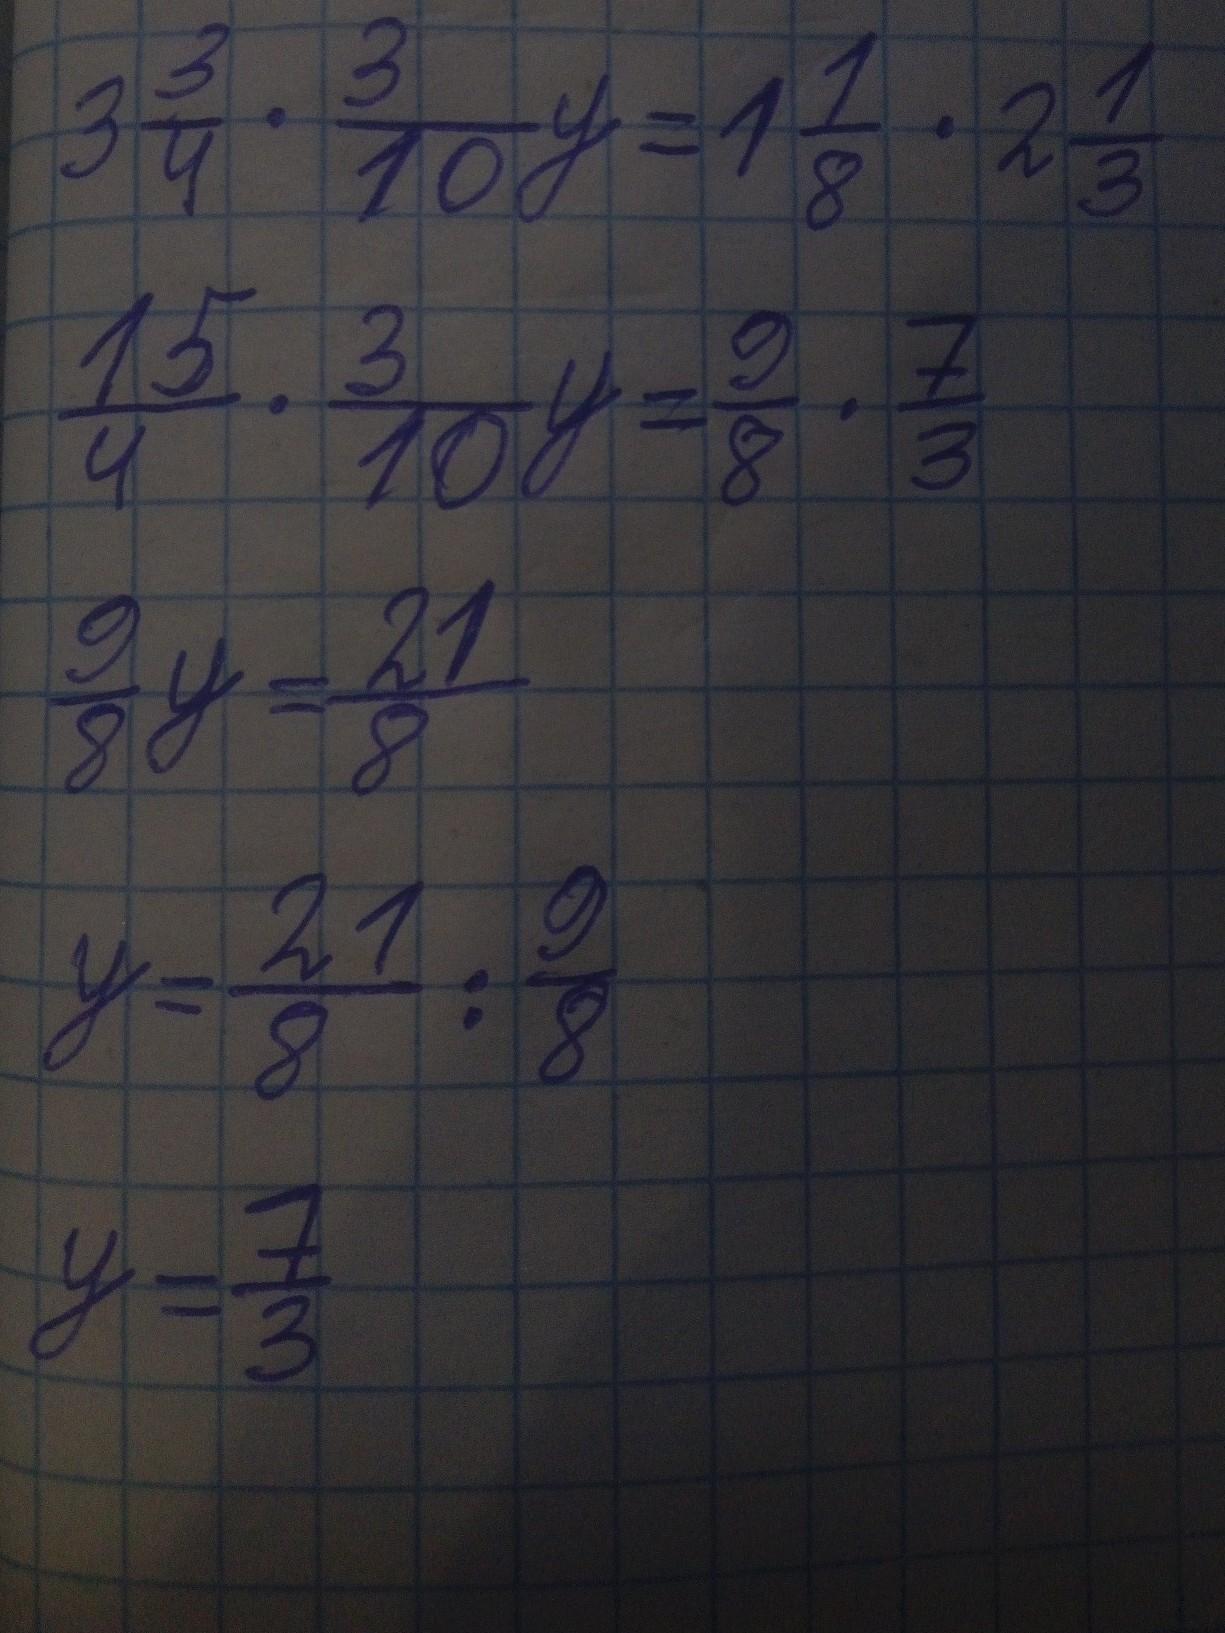 3 3/4 · 3/10 y = 1 1/8 · 2 1/3
15/4 · 3/10 y = 9/8 · 7/3
9/8 y = 21/8
y = 21/8 : 9/8
y = 7/3